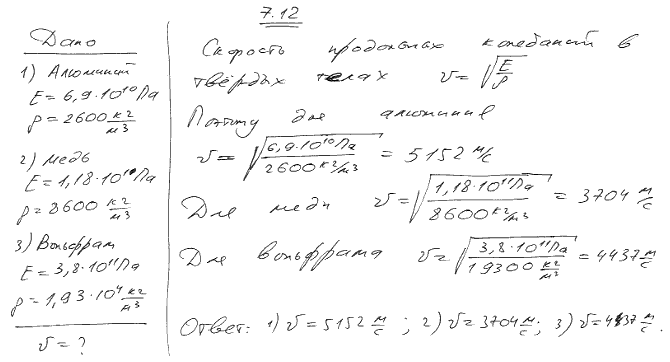 7.12
Дано
1) Алюминий
E = 6,9·10¹⁰Па
ρ = 2600 кг/м³
2) медь
E = 1,18·10¹¹Па
ρ = 8600 кг/м³
3) Вольфрам
E = 3,8·10¹¹Па
ρ = 1,93·10⁴ кг/м³
v = ?
Скорость продольных колебаний в
твёрдых телах v = √(E/ρ)
Поэтому для алюминия
v = √(6,9·10¹⁰Па / 2600 кг/м³) = 5152 м/с
Для меди v = √(1,18·10¹¹Па / 8600 кг/м³) = 3704 м/с
Для вольфрама v = √(3,8·10¹¹Па / 19300 кг/м³) = 4437 м/с
Ответ: 1) v = 5152 м/с ; 2) v = 3704 м/с; 3) v = 4437 м/с.